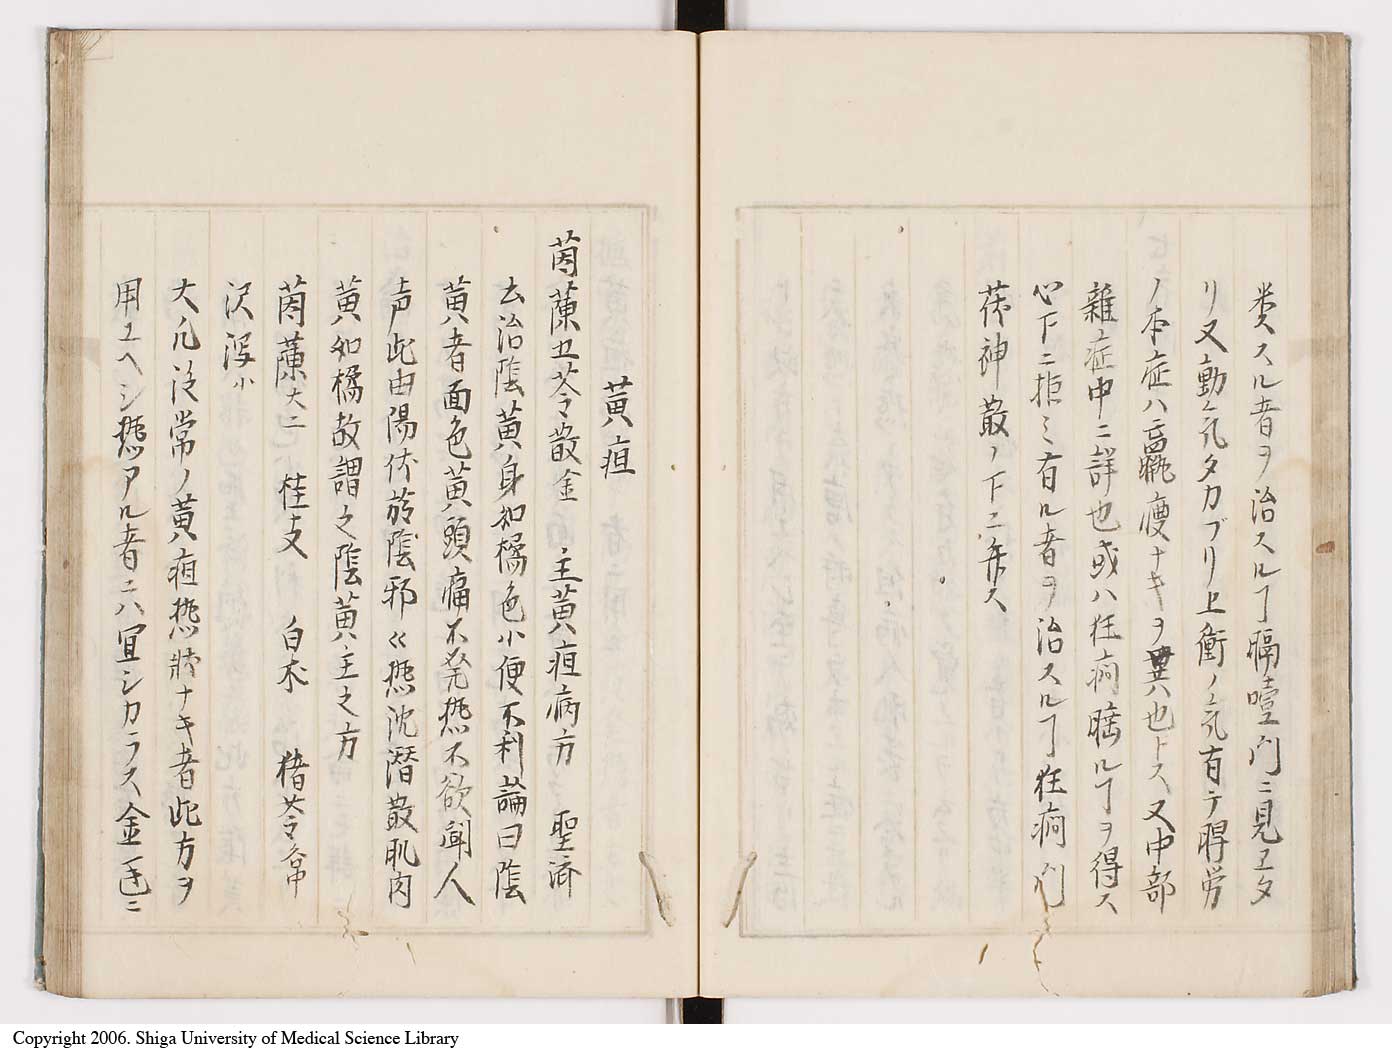 类スル者ヲ治スルヿ膈噎門ニ見ヱタ
リ又動気タカブリ上衝ノ気有テ𦜝労
ノ本症ハ羸痩ナキヲ異也トス又中部
雑症中ニ詳也或ハ狂癇睡ルヿヲ得ス
心下ニ拒ミ有ル者ヲ治スルヿ狂癇門
茯神散ノ下ニ弁ス
黄疸
茵蔯五苓散金 主黄疸病方 聖済
云治陰黄身如橘色小便不利論曰陰
黄者面色黄頭痛不発熱不欲聞人
声此由陽伏於陰邪々熱沈潜散肌肉
黄如橘故謂之陰黄主之方
茵蔯大二 桂支 白朮 猪苓各中
沢瀉小
大凡泛常ノ黄疸熱状ナキ者此方ヲ
用ユヘシ熱アル者ニハ宜シカラス金匱ニ
Copyright 2006. Shiga University of Medical Science Library